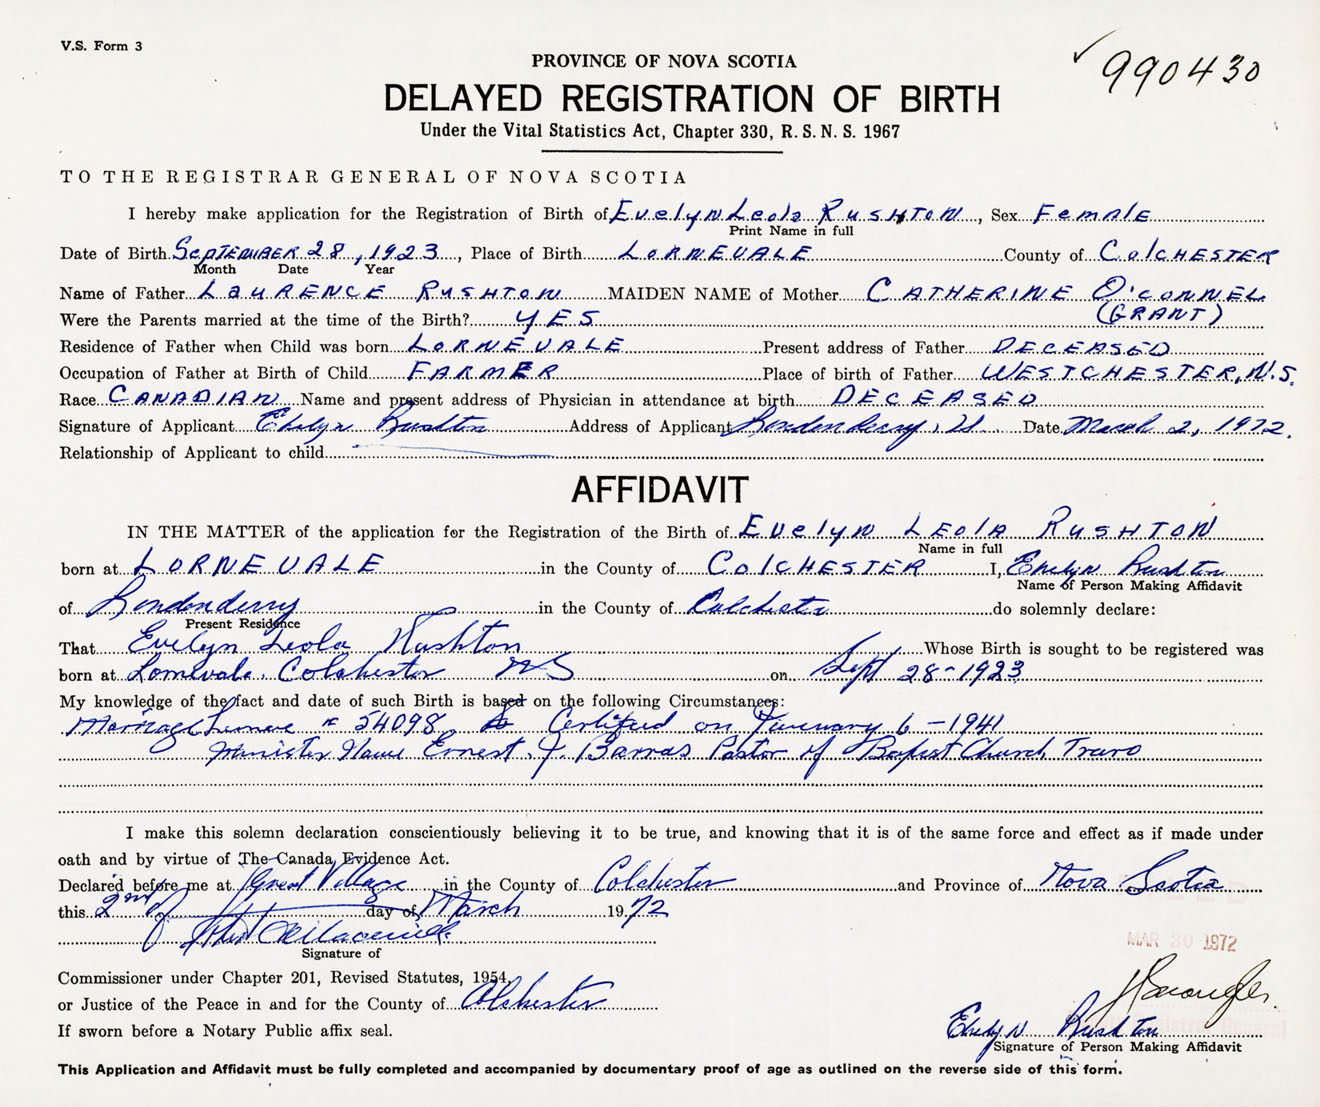 V.S. Form 3
990430
PROVINCE OF NOVA SCOTIA
DELAYED REGISTRATION OF BIRTH
Under the Vital Statistics Act, Chapter 330, R.S.N.S. 1967
TO THE REGISTRAR GENERAL OF NOVA SCOTIA
I hereby make application for the Registration of Birth of Evelyn Leola RUSHTON, Sex Female
Print Name in full
Date of Birth SEPTEMBER 28, 1923, Place of Birth LORNEVALE County of COLCHESTER
Month Date Year
Name of Father LAURENCE RUSHTON MAIDEN NAME of Mother CATHERINE O'CONNEL
Were the Parents married at the time of the Birth? YES (GRANT)
Residence of Father when Child was born LORNEVALE Present address of Father DECEASED
Occupation of Father at Birth of Child FARMER Place of birth of Father WESTCHESTER, N.S.
Race CANADIAN Name and present address of Physician in attendance at birth DECEASED
Signature of Applicant Evelyn Rushton Address of Applicant Londonderry, Date March 2, 1972.
Relationship of Applicant to child
AFFIDAVIT
IN THE MATTER of the application for the Registration of the Birth of Evelyn LEOLA RUSHTON
Name in full
born at LORNEVALE in the County of COLCHESTER I, Evelyn Rushton
Name of Person Making Affidavit
of Londonderry in the County of Colchester do solemnly declare:
Present Residence
That Evelyn Leola Rushton Whose Birth is sought to be registered was
born at Lornevale, Colchester NS on Sept 28-1923
My knowledge of the fact and date of such Birth is based on the following Circumstances:
Marriage # 54098 Certified on January 6-1941
Minister Name Ernest J. Barras Pastor of Baptist Church, Truro
I make this solemn declaration conscientiously believing it to be true, and knowing that it is of the same force and effect as if made under
oath and by virtue of The Canada Evidence Act.
Declared before me at Great Village in the County of Colchester and Province of Nova Scotia
this 2nd day of March 1972
Signature of
MAR 30 1972
Commissioner under Chapter 201, Revised Statutes, 1954,
or Justice of the Peace in and for the County of Colchester
If sworn before a Notary Public affix seal.
Evelyn Rushton
Signature of Person Making Affidavit
This Application and Affidavit must be fully completed and accompanied by documentary proof of age as outlined on the reverse side of this form.